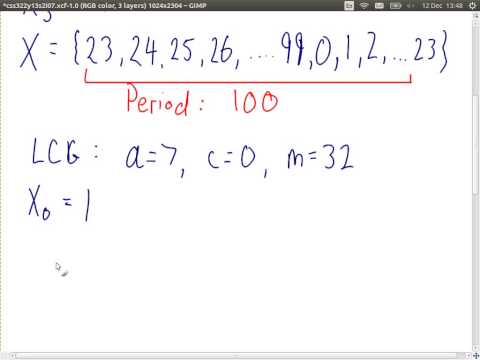 *css322y13s2l07.xcf-1.0 (RGB color, 3 layers) 1024x2304 – GIMP
12 Dec 13:48
X = {23,24,25,26, .... 99,0,1,2, ...23}
Period: 100
LCG: a=7, c=0, m=32
X₀ = 1